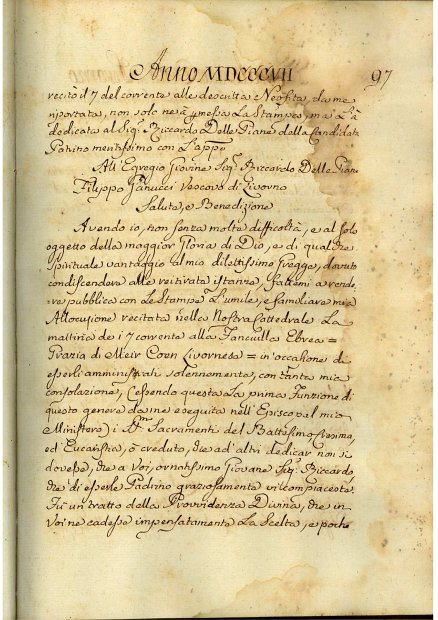 Anno MDCCCVII
97
recitò il 7 del corrente alle descritta Neofita, da me
riportata, non solo ne à permessa La Stampa, ma L'à
dedicata al Sig.r Riccardo Delle Piane della Candidata
Patrino meritissimo con L'appo
All' Egregio Giovine Sig.r Riccardo Delle Piane
Filippo Ganucci Vescovo di Livorno
Salute, e Benedizione
Avendo io, non senza molta difficoltà, e al solo
oggetto della maggior Gloria di Dio, e di qualche
Spirituale vantaggio al mio dilettissimo Gregge, dovuto
condiscendere alle reiterate istanze, fattemi a rende,
re pubblica con Le Stampe L'umile, e familiare mia
Allocuzione recitata nella Nostra Cattedrale La
mattina de i 7 corrente alla Fanciulla Ebrea =
Grazia di Meir Coen Livornese = in occasione di
esserli amministrati solennemente, con tanta mia
consolazione, (essendo questa La prima Funzione di
questo genere da me eseguita nell' Episcopal mio
Ministero) i SS.mi Sacramenti del Battesimo Cresima,
ed' Eucaristia, ò creduto, che ad' altri dedicar non si
dovesse, che a Voi, ornatissimo Giovane Sig.r Riccardo,
che di esserle Padrino graziosamente vi compiaceste.
Fù un tratto della Provvidenza Divina, che in
Voi ne cadesse impensatamente La Scelta, e poche